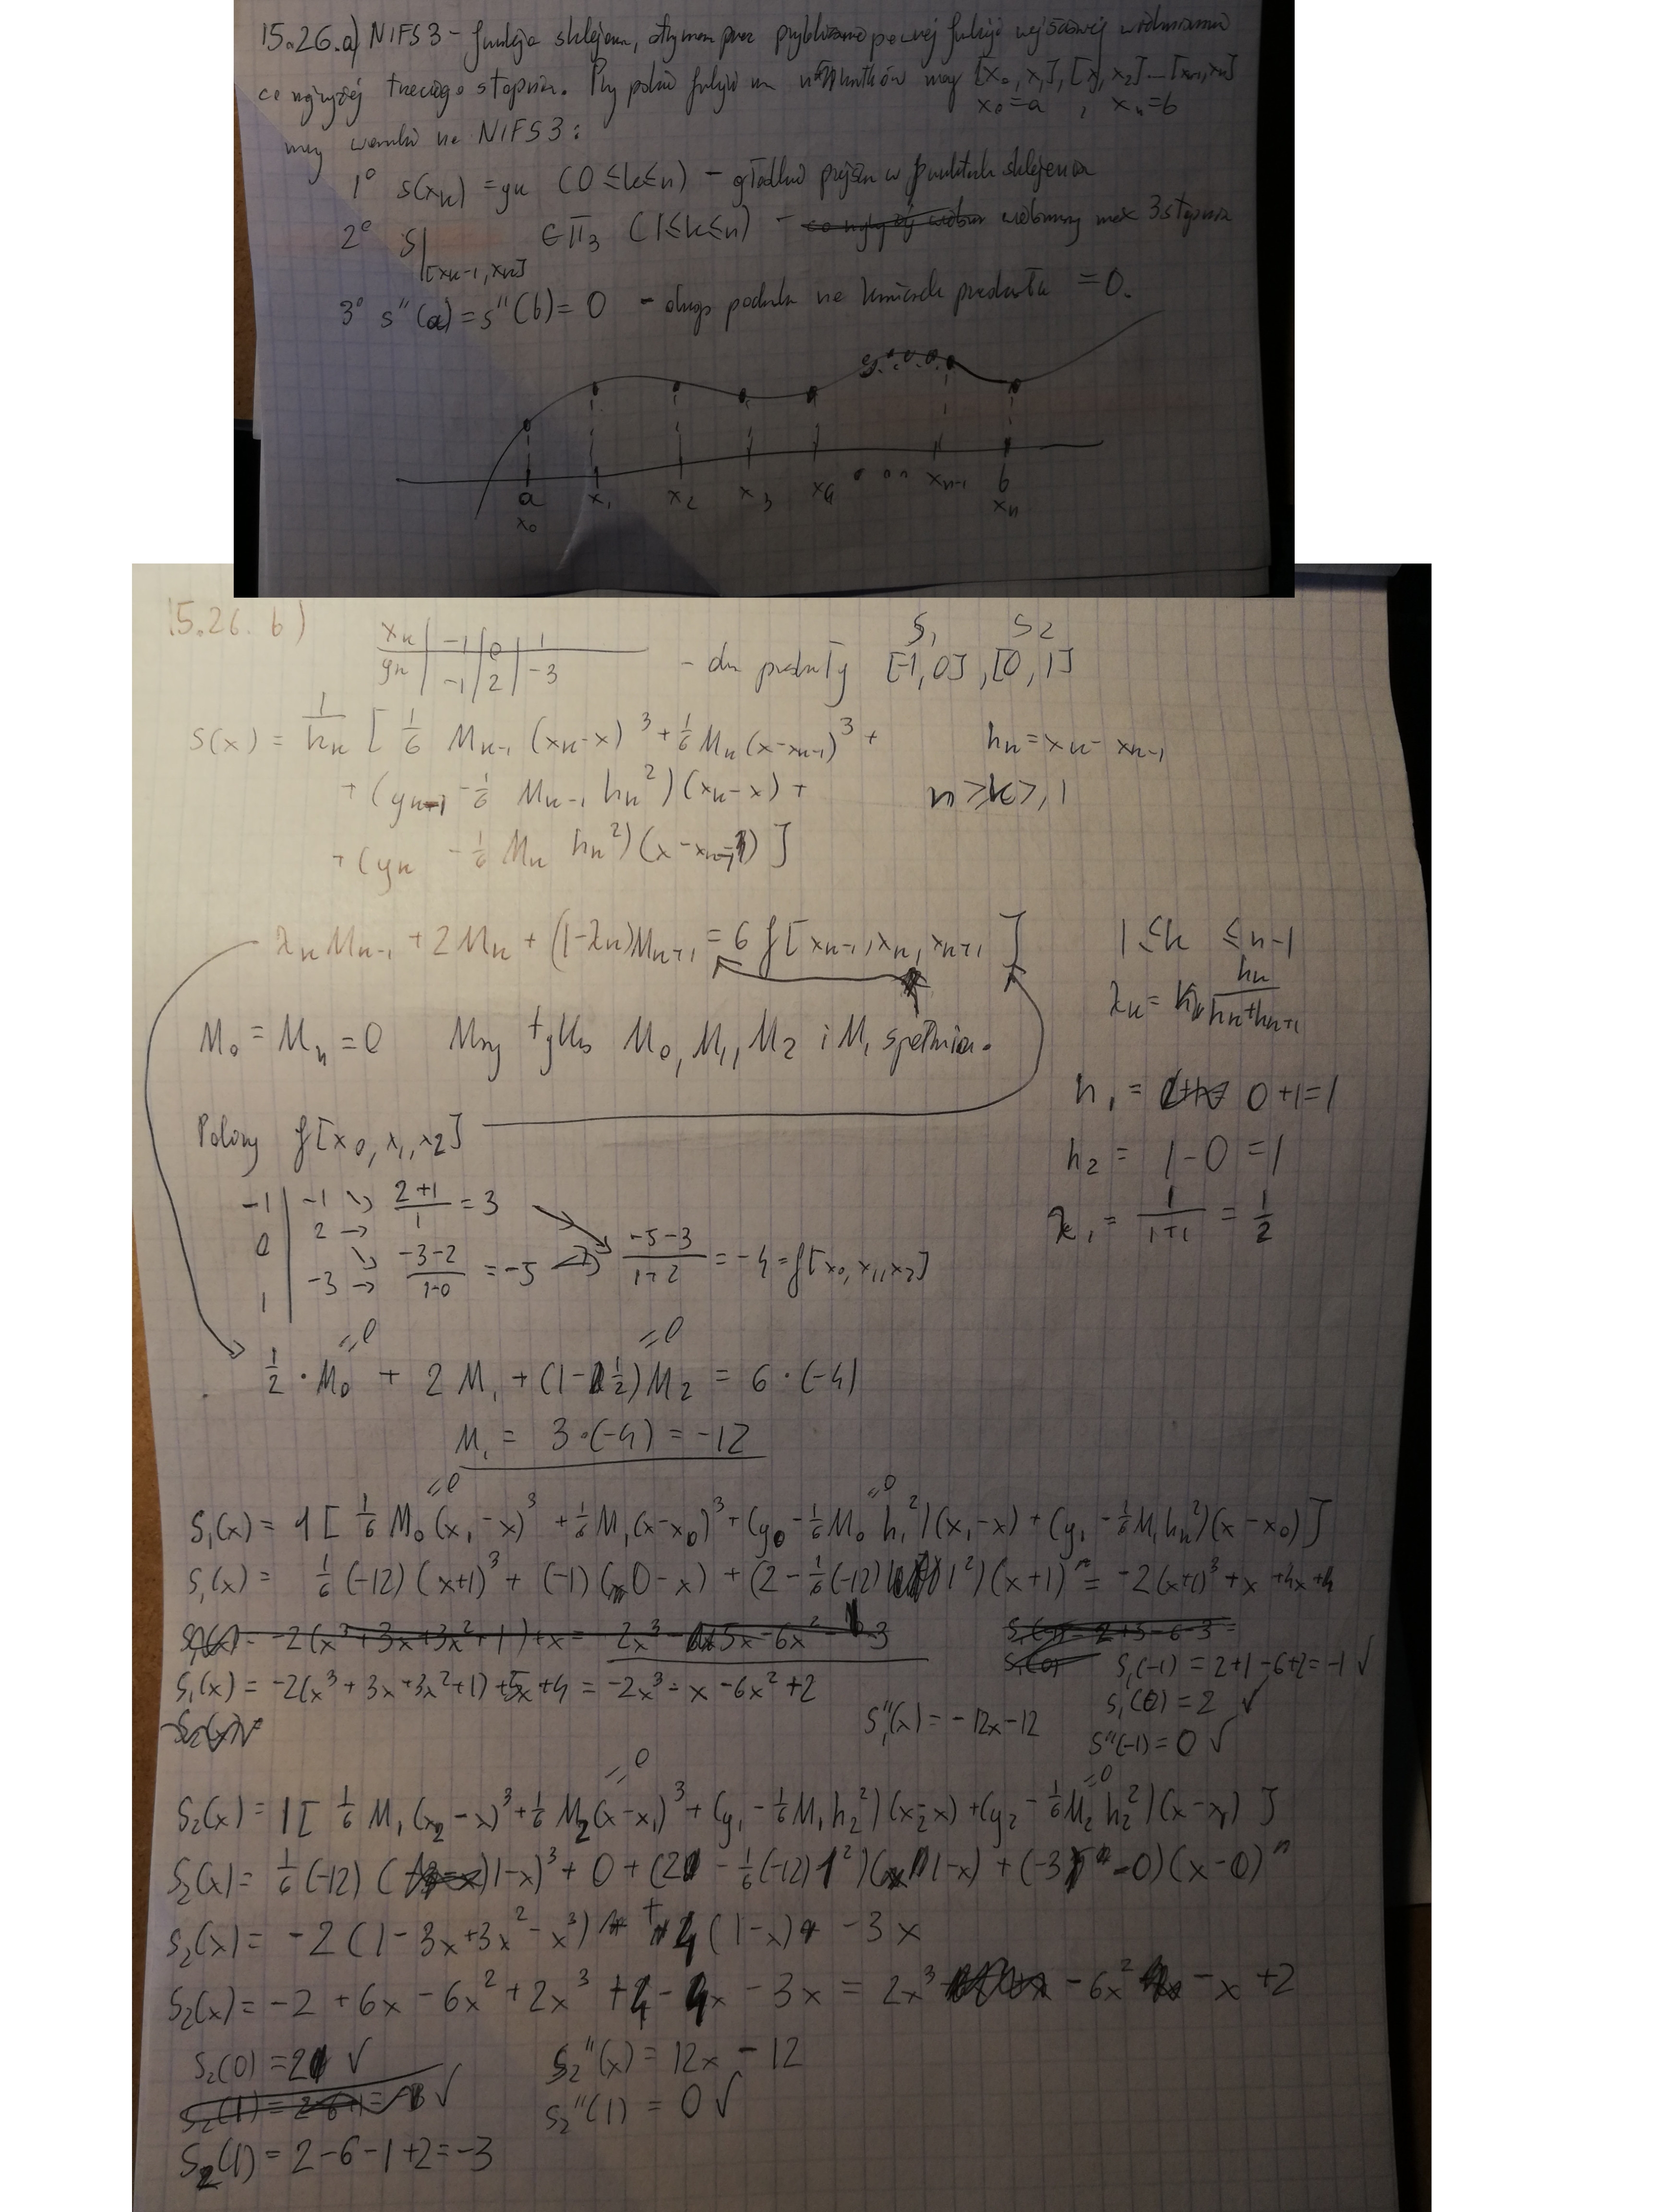 15.26.a) NIFS3 - funkcja sklejana, otrzymana przez przybliżenie pewnej funkcji wejściowej wielomianami
co najwyżej trzeciego stopnia. Przy podziale funkcji na n mamy [x₀, x₁], [x₁, x₂] ... [xₙ₋₁, xₙ]
x₀=a , xₙ=b
mamy warunki na NIFS3:
1° s(xₖ) = yₖ (0 ≤ k ≤ n) - gładkie przejścia w punktach sklejenia
2° s|[xₖ₋₁, xₖ] ∈ Π₃ (1 ≤ k ≤ n) - wielomiany max 3 stopnia
3° s''(a) = s''(b) = 0 - druga pochodna na krańcach przedziału = 0.
a x₁ x₂ x₃ x₄ ... xₙ₋₁ b
x₀ xₙ
15.26. b)
S₁ S₂
xₖ | -1 | 0 | 1
yₖ | -1 | 2 | -3 - dwa przedziały [-1, 0], [0, 1]
s(x) = 1/hₖ [ 1/6 Mₖ₋₁ (xₖ-x)³ + 1/6 Mₖ (x-xₖ₋₁)³ + hₖ = xₖ - xₖ₋₁
+ (yₖ₋₁ - 1/6 Mₖ₋₁ hₖ²)(xₖ-x) + n ≥ k ≥ 1
+ (yₖ - 1/6 Mₖ hₖ²)(x-xₖ₋₁) ]
λₖ Mₖ₋₁ + 2Mₖ + (1-λₖ)Mₖ₊₁ = 6 f[xₖ₋₁, xₖ, xₖ₊₁] 1 ≤ k ≤ n-1
λₖ = hₖ/(hₖ+hₖ₊₁)
M₀ = Mₙ = 0 Mamy tylko M₀, M₁, M₂ i M₁ spełnia.
h₁ = 0+1=1
Policzmy f[x₀, x₁, x₂]
h₂ = 1-0 = 1
-1 | -1 ↘ (2+1)/1 = 3
λ₁ = 1/(1+1) = 1/2
0 | 2 →
1 | -3 → (-3-2)/(1-0) = -5 → (-5-3)/(1+2) = -4 = f[x₀, x₁, x₂]
=0 =0
1/2 · M₀ + 2M₁ + (1-1/2)M₂ = 6·(-4)
M₁ = 3·(-4) = -12
=0 =0
S₁(x) = 1[ 1/6 M₀ (x₁-x)³ + 1/6 M₁(x-x₀)³ + (y₀ - 1/6 M₀ h₁²)(x₁-x) + (y₁ - 1/6 M₁hₖ²)(x-x₀) ]
S₁(x) = 1/6 (-12)(x+1)³ + (-1)(0-x) + (2 - 1/6(-12) 1²)(x+1) = -2(x+1)³ + x + 4x + 4
S₁(x) = -2(x³+3x+3x²+1)+x = 2x³ - 5x - 6x² - 3
S₁(x) = -2(x³+3x+3x²+1) + 5x + 4 = -2x³ - x - 6x² + 2
S₁(-1) = 2+1-6+2 = -1 √
S₁(0) = 2 √
S₁''(x) = -12x-12
S''(-1) = 0 √
=0 =0
S₂(x) = 1[ 1/6 M₁ (x₂-x)³ + 1/6 M₂(x-x₁)³ + (y₁ - 1/6 M₁h₂²)(x₂-x) + (y₂ - 1/6 M₂ h₂²)(x-x₁) ]
S₂(x) = 1/6 (-12)(1-x)³ + 0 + (2 - 1/6(-12)1²)(1-x) + (-3 - 0)(x-0)
S₂(x) = -2(1-3x+3x²-x³) + 4(1-x) - 3x
S₂(x) = -2 + 6x - 6x² + 2x³ + 4 - 4x - 3x = 2x³ - 6x² - x + 2
S₂(0) = 2 √ S₂''(x) = 12x - 12
S₂''(1) = 0 √
S₂(1) = 2-6-1+2 = -3